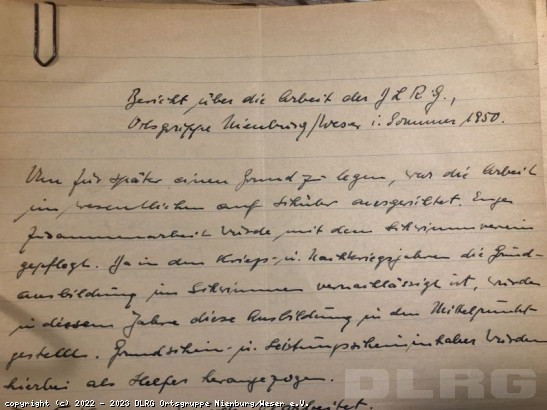 Bericht über die Arbeit der D L R G.,
Ortsgruppe Nienburg/Weser i. Sommer 1950.
Um für später einen Grund zu legen, war die Arbeit
im wesentlichen auf Schüler ausgerichtet. Enge
Zusammenarbeit wurde mit dem Schwimmverein
gepflegt. Da in den Kriegs- u. Nachkriegsjahren die Grund-
ausbildung im Schwimmen vernachlässigt ist, wurde
in diesem Jahre diese Ausbildung in den Mittelpunkt
gestellt. Grundschein- u. Leistungsscheininhaber wurden
hierbei als Helfer herangezogen.
DLRG
copyright (c) 2022 - 2023 DLRG Ortsgruppe Nienburg/Weser e.V.